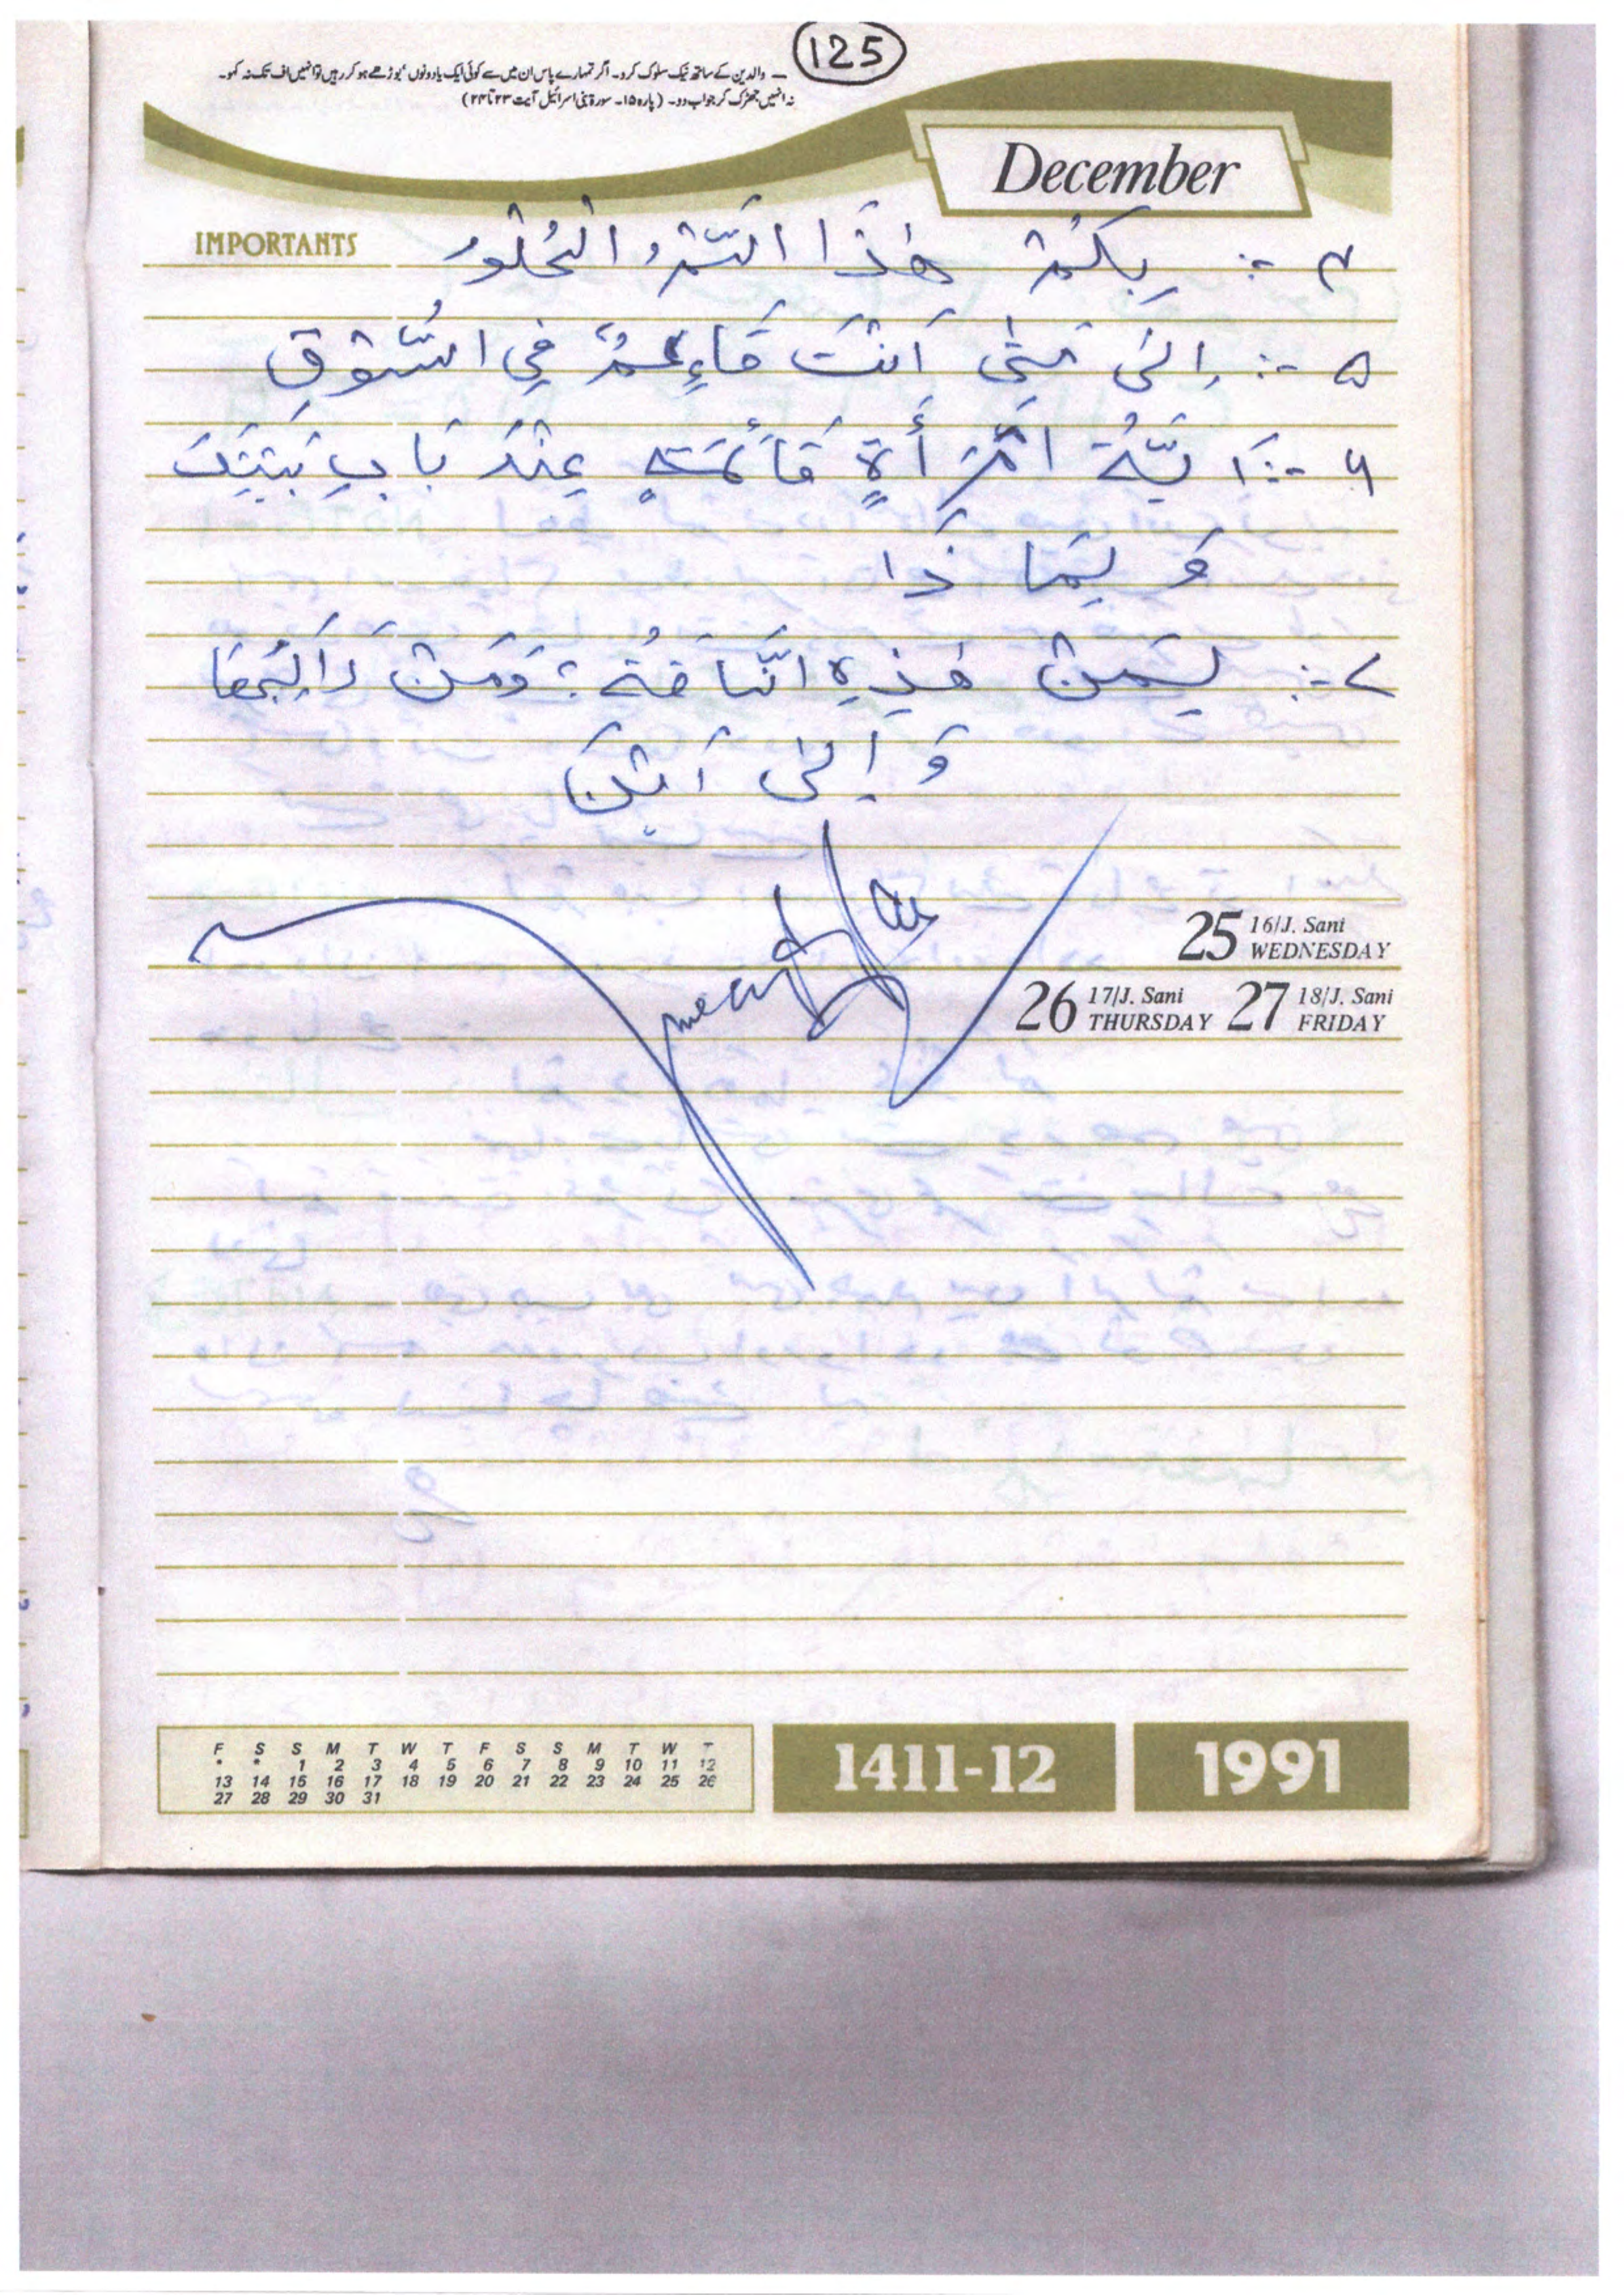 125
۔ والدین کے ساتھ نیک سلوک کرو۔ اگر تمہارے پاس ان میں سے کوئی ایک یا دونوں بوڑھے ہو کر رہیں تو انہیں اف تک نہ کہو۔
نہ انہیں جھڑک کر جواب دو۔ (پارہ ۱۵۔ سورۃ بنی اسرائیل آیت ۲۳ تا ۲۴)
December
IMPORTANTS
۴ :- بِكَمْ هٰذَا التَّمْرُ الْحُلْوُ
۵ :- اِلىٰ مَتىٰ اَنْتَ قَاءِمٌ فِي السُّوْقِ
۶ :- اَيَّةُ امْرَأَةٍ قَائمَةٍ عِنْدَ بَابِ بَيْتِكَ
وَ لِمَا ذَا
۷ :- لِمَنْ هٰذِهِ النَّاقَةُ ؛ وَمَنْ رَاكِبُهَا
وَ اِلىٰ اَيْنَ
25 16/J. Sani WEDNESDAY
26 17/J. Sani THURSDAY 27 18/J. Sani FRIDAY
F S S M T W T F S S M T W T
* * 1 2 3 4 5 6 7 8 9 10 11 12
13 14 15 16 17 18 19 20 21 22 23 24 25 26
27 28 29 30 31
1411-12
1991